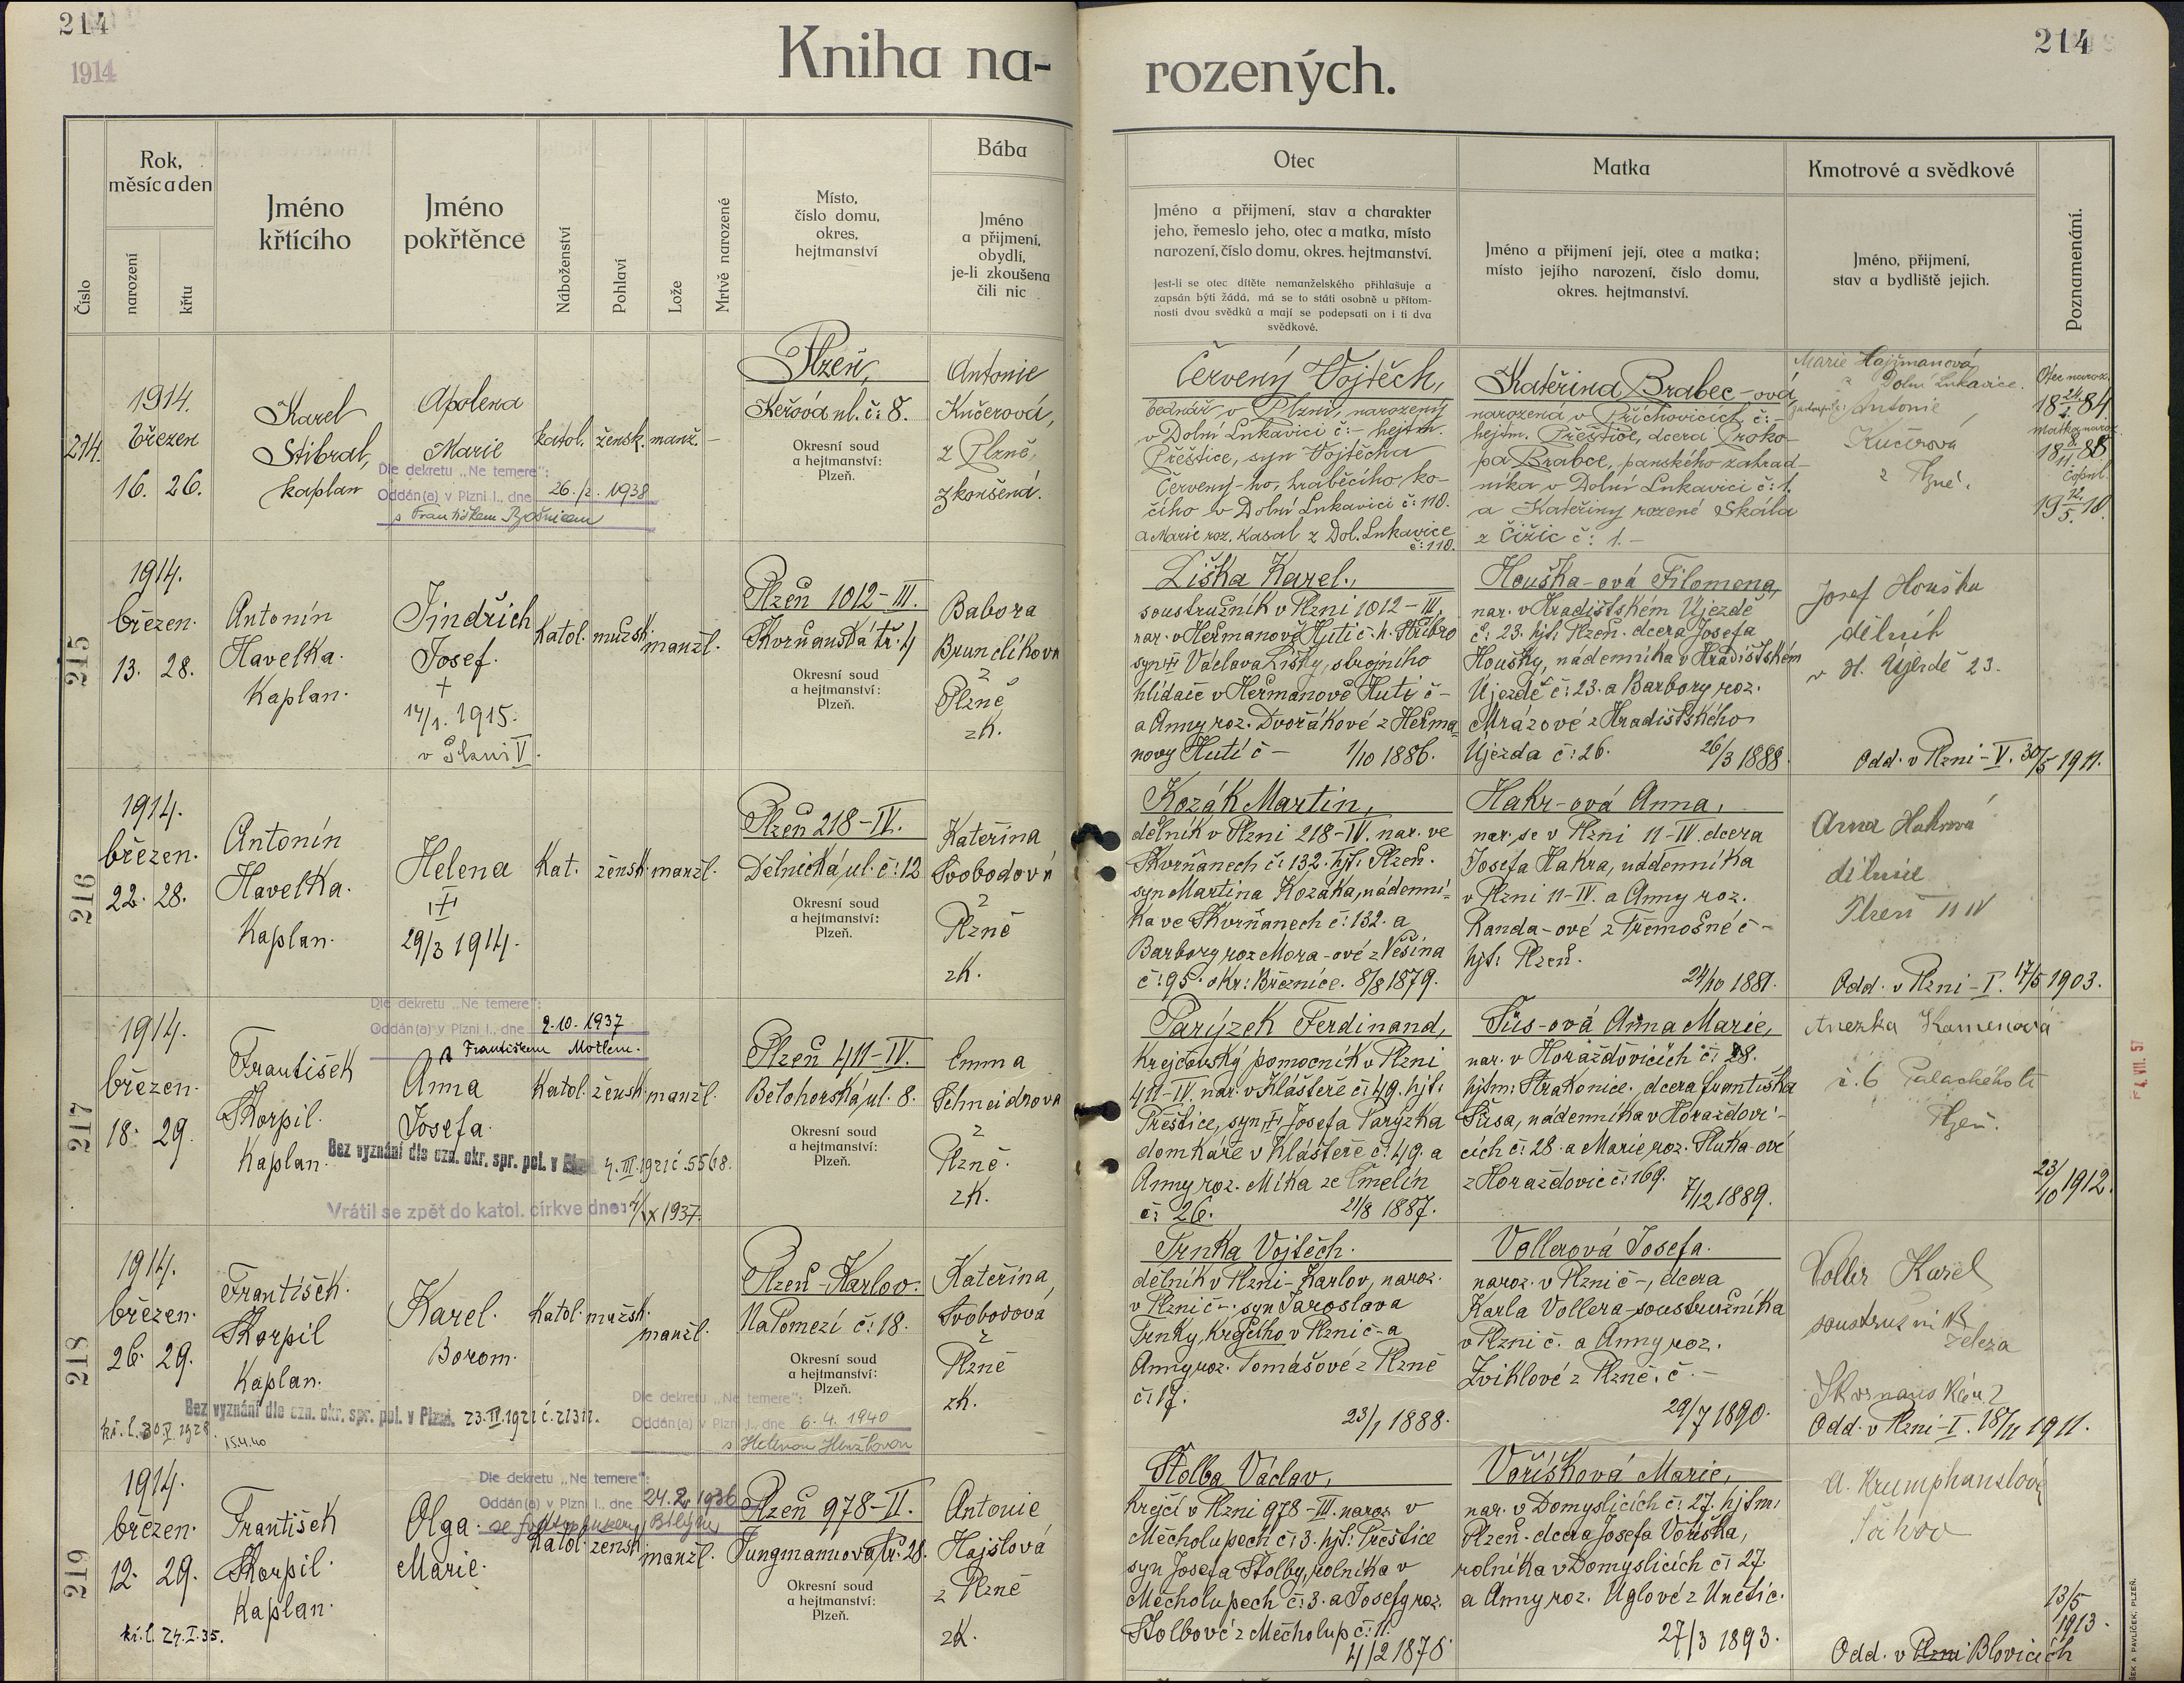 214
1914
Kniha na-
rozených.
214
Číslo
Rok,
měsíc a den
narození
křtu
Jméno
křtícího
Jméno
pokřtěnce
Náboženství
Pohlaví
Lože
Mrtvě narozené
Místo,
číslo domu,
okres,
hejtmanství
Bába
Jméno
a přijmení,
obydlí,
je-li zkoušena
čili nic
Otec
Jméno a přijmení, stav a charakter
jeho, řemeslo jeho, otec a matka, místo
narození, číslo domu, okres. hejtmanství.
Jest-li se otec dítěte nemanželského přihlašuje a
zapsán býti žádá, má se to státi osobně u přítom-
nosti dvou svědků a mají se podepsati on i ti dva
svědkové.
Matka
Jméno a přijmení její, otec a matka;
místo jejího narození, číslo domu,
okres. hejtmanství.
Kmotrové a svědkové
Jméno, přijmení,
stav a bydliště jejich.
Poznamenání.
214.
1914.
březen
16. 26.
Karel
Stibral,
kaplan
Apolena
Marie
Dle dekretu „Ne temere":
Oddán(a) v Plzni I., dne 26./2. 1938
s Františkem
katol. žensk. manž. –
Plzeň,
Keřová ul. č: 8.
Okresní soud
a hejtmanství:
Plzeň.
Antonie
Kučerová,
z Plzně,
zkoušená.
Červený Vojtěch,
bednář v Plzni, narozený
v Dolní Lukavici č:– hejtm.
Přeštice, syn Vojtěcha
Červený-ho, hraběcího ko-
čího v Dolní Lukavici č: 110.
a Marie roz. Kasal z Dol. Lukavice
č: 110.
Kateřina Brabec-ová
narozená v Příchovicích č:–
hejtm. Přeštice, dcera Proko-
pa Brabce, panského zahrad-
níka v Dolní Lukavici č: 1.
a Kateřiny rozené Skála
z Čižic č: 1.–
Marie Hajžmanová
z Dolní Lukavice.
zastoupila: Antonie
Kučerová
z Plzně.
Otec naroz.
18 24/4. 84.
Matka naroz.
18 8/11. 88
Copul.
19 12./5. 10.
215
1914.
březen.
13. 28.
Antonín
Havelka.
Kaplan.
Jindřich
Josef.
+
14/1. 1915.
v Plzni V.
Katol. mužsk. manžl.
Plzeň 1012-III.
Skvrňanská tř. 4
Okresní soud
a hejtmanství:
Plzeň.
Babora
Brunclíková
z
Plzně
zk.
Liška Karel,
soustružník v Plzni 1012-III,
nar. v Heřmanově Huti č:h. Stříbro
syn + Václava Lišky, strojního
hlídače v Heřmanově Huti č–
a Anny roz. Dvořákové z Heřma-
novy Huti č – 1/10 1886.
Houška-ová Filomena,
nar. v Hradištském Újezdě
č: 23. hjt: Plzeň. dcera Josefa
Houšky, nádenníka v Hradištském
Újezdě č: 23. a Barbory roz.
Mrázové z Hradištského
Újezda č: 26. 26/3 1888.
Josef Houška
dělník
v H. Újezdě 23.
Odd. v Plzni-V. 30/5 1911.
216
1914.
březen.
22. 28.
Antonín
Havelka.
Kaplan.
Helena
+
29/3 1914.
Kat. žensk. manžl.
Plzeň 218-IV.
Dělnická ul. č: 12
Okresní soud
a hejtmanství:
Plzeň.
Kateřina
Svobodová
z
Plzně
zk.
Kozák Martin,
dělník v Plzni 218-IV. nar. ve
Skvrňanech č: 132. hjt: Plzeň.
syn Martina Kozáka, nádenní-
ka ve Skvrňanech č: 132. a
Barbory roz Mora-ové z Věšína
č: 95. okr: Březnice. 8/8 1879.
Hakr-ová Anna,
nar. se v Plzni 11-IV. dcera
Josefa Hakra, nádenníka
v Plzni 11-IV. a Anny roz.
Kanda-ové z Třemošné č –
hjt: Plzeň.
24/10 1881.
Anna Hakrová
dělnice
Plzeň 11 IV
Odd. v Plzni-I. 17/5 1903.
217
1914.
březen.
18. 29.
František
Škorpil.
Kaplan.
Dle dekretu „Ne temere":
Oddán(a) v Plzni I., dne 2.10.1937
s Františkem Motlem.
Anna
Josefa.
Bez vyznání dle ozn. okr. spr. pol. v Plzni 4. III. 1921 č. 5568.
Vrátil se zpět do katol. církve dne: 1/IX 1937.
Katol. žensk. manžl.
Plzeň 411-IV.
Bělohorská ul. 8.
Okresní soud
a hejtmanství:
Plzeň.
Emma
Schneidrová
z
Plzně.
zk.
Parýzek Ferdinand,
krejčovský pomocník v Plzni
411-IV. nar. v Klášteře č: 49. hjt:
Přeštice, syn + Josefa Parýzka
domkáře v Klášteře č: 49. a
Anny roz. Míka ze Čmelín
č: 26. 21/8 1887.
Šůs-ová Anna Marie,
nar. v Horažďovicích č: 28.
hjtm: Strakonice. dcera Františka
Šůsa, nádenníka v Horažďovi-
cích č: 28. a Marie roz. Sluka-ové
z Horažďovic č: 169.
7/12 1889.
Anežka Kamenová
č. 6 Palackého tř
Plzeň.
23/10 1912.
F 4. VII. 57
218
1914.
březen.
26. 29.
František.
Škorpil
Kaplan.
Karel.
Borom.
Bez vyznání dle ozn. okr. spr. pol. v Plzni. 23. IV. 1921 č. 21311.
kř. l. 30. V. 1928.
15.4.40
Katol. mužsk. manžl.
Dle dekretu „Ne temere":
Oddán(a) v Plzni I., dne 6. 4. 1940
s Helenou
Plzeň-Karlov.
Na Pomezí č: 18.
Okresní soud
a hejtmanství:
Plzeň.
Kateřina,
Svobodová
z
Plzně
zk.
Trnka Vojtěch.
dělník v Plzni-Karlov, naroz.
v Plzni č–. syn Jaroslava
Trnky, krejčího v Plzni č–a
Anny roz. Tomášové z Plzně
č: 17.
23/1 1888.
Vollerová Josefa.
naroz. v Plzni č –, dcera
Karla Vollera soustružníka
v Plzni č. a Anny roz.
Zviklové z Plzně. č –
29/7 1890.
Voller Karel
soustružník
železa
Odd. v Plzni-I. 18/11 1911.
219
1914.
březen.
12. 29.
kř. l. 24. I. 35.
František
Škorpil.
Kaplan.
Dle dekretu „Ne temere":
Oddán(a) v Plzni I., dne 24. 2. 1936
Olga.
Marie.
Katol. žensk. manžl.
Plzeň 978-II.
Jungmannova tř. 28.
Okresní soud
a hejtmanství:
Plzeň.
Antonie
Hajšlová
z Plzně
zk.
Štolba Václav,
krejčí v Plzni 978-III. naroz. v
Měcholupech č: 3. hjt: Přeštice
syn Josefa Štolby, rolníka v
Měcholupech č: 3. a Josefy roz.
Štolbové z Měcholup č: 11.
4/2 1878.
Voříšková Marie,
nar. v Domyslicích č: 27. hjtm:
Plzeň. dcera Josefa Voříška,
rolníka v Domyslicích č: 27
a Anny roz. Uglové z Unětic.
27/3 1893.
A. Krumphanslová
13/5
1913.
Odd. v Plzni Blovicích
A. PAVLÍČEK, PLZEŇ.